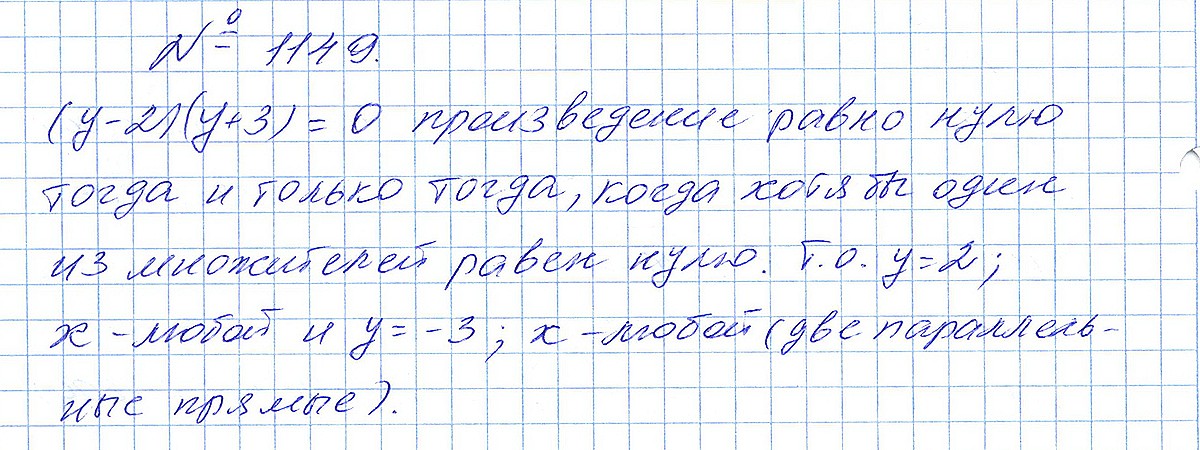 № 1149.
(y-2)(y+3) = 0 произведение равно нулю
тогда и только тогда, когда хотя бы один
из множителей равен нулю. Т.о. y=2;
x - любой и y = -3; x - любой (две параллель-
ные прямые).